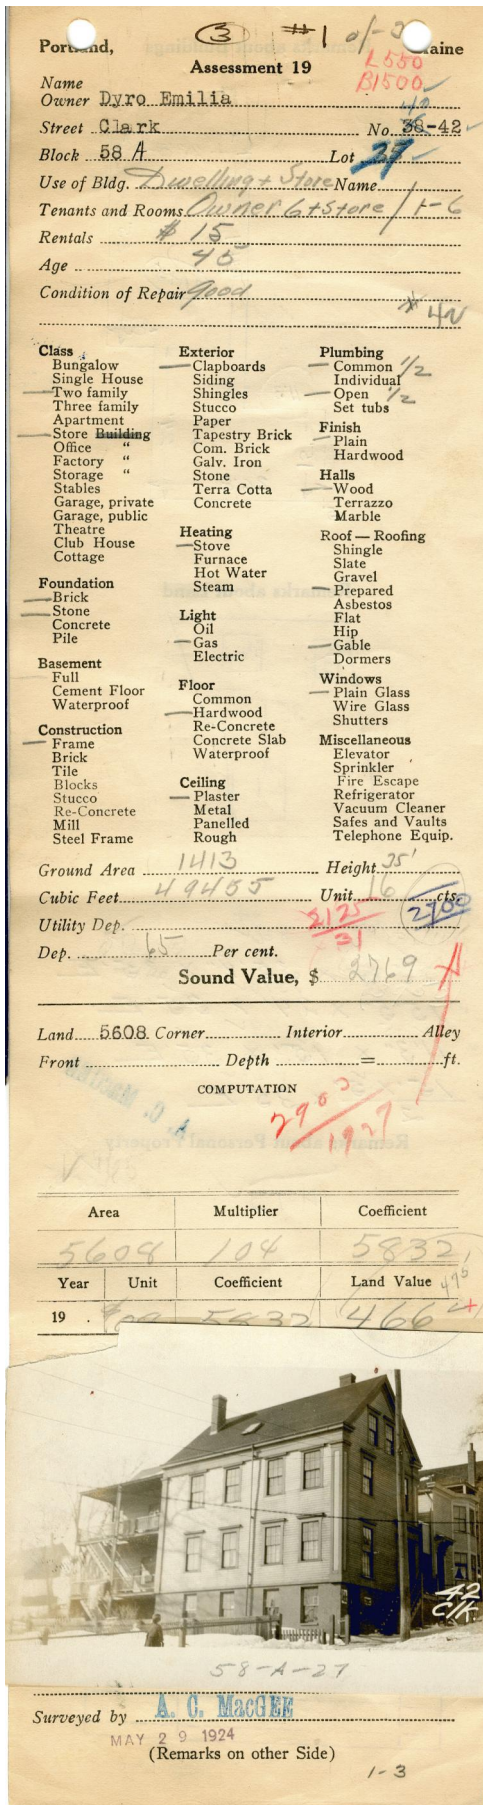 3 #1
Portland, Maine
L550
B1500
Assessment 19
Name
Owner Dyro Emilia
40
Street Clark No. 38-42
Block 58 A Lot 27
Use of Bldg. Dwelling + Store Name
Tenants and Rooms Owner 6 + store / 1-6
Rentals $ 15
Age 45
Condition of Repair good
Class
Bungalow
Single House
Two family
Three family
Apartment
Store Building
Office "
Factory "
Storage "
Stables
Garage, private
Garage, public
Theatre
Club House
Cottage
Foundation
Brick
Stone
Concrete
Pile
Basement
Full
Cement Floor
Waterproof
Construction
Frame
Brick
Tile
Blocks
Stucco
Re-Concrete
Mill
Steel Frame
Exterior
Clapboards
Siding
Shingles
Stucco
Paper
Tapestry Brick
Com. Brick
Galv. Iron
Stone
Terra Cotta
Concrete
Heating
Stove
Furnace
Hot Water
Steam
Light
Oil
Gas
Electric
Floor
Common
Hardwood
Re-Concrete
Concrete Slab
Waterproof
Ceiling
Plaster
Metal
Panelled
Rough
Plumbing
Common 1/2
Individual
Open 1/2
Set tubs
Finish
Plain
Hardwood
Halls
Wood
Terrazzo
Marble
Roof — Roofing
Shingle
Slate
Gravel
Prepared
Asbestos
Flat
Hip
Gable
Dormers
Windows
Plain Glass
Wire Glass
Shutters
Miscellaneous
Elevator
Sprinkler
Fire Escape
Refrigerator
Vacuum Cleaner
Safes and Vaults
Telephone Equip.
Ground Area 1413 Height 35'
Cubic Feet 49455 Unit 16 cts.
2700
Utility Dep. 2125
31
Dep. 65 Per cent.
Sound Value, $ 2769
Land 5608 Corner Interior Alley
Front Depth = ft.
COMPUTATION
1927
Area Multiplier Coefficient
5608 104 5832
Year Unit Coefficient Land Value 475
19 . 5832 466
42
Clk
58-A-27
Surveyed by A. C. MacGEE
MAY 29 1924
(Remarks on other Side)
1-3